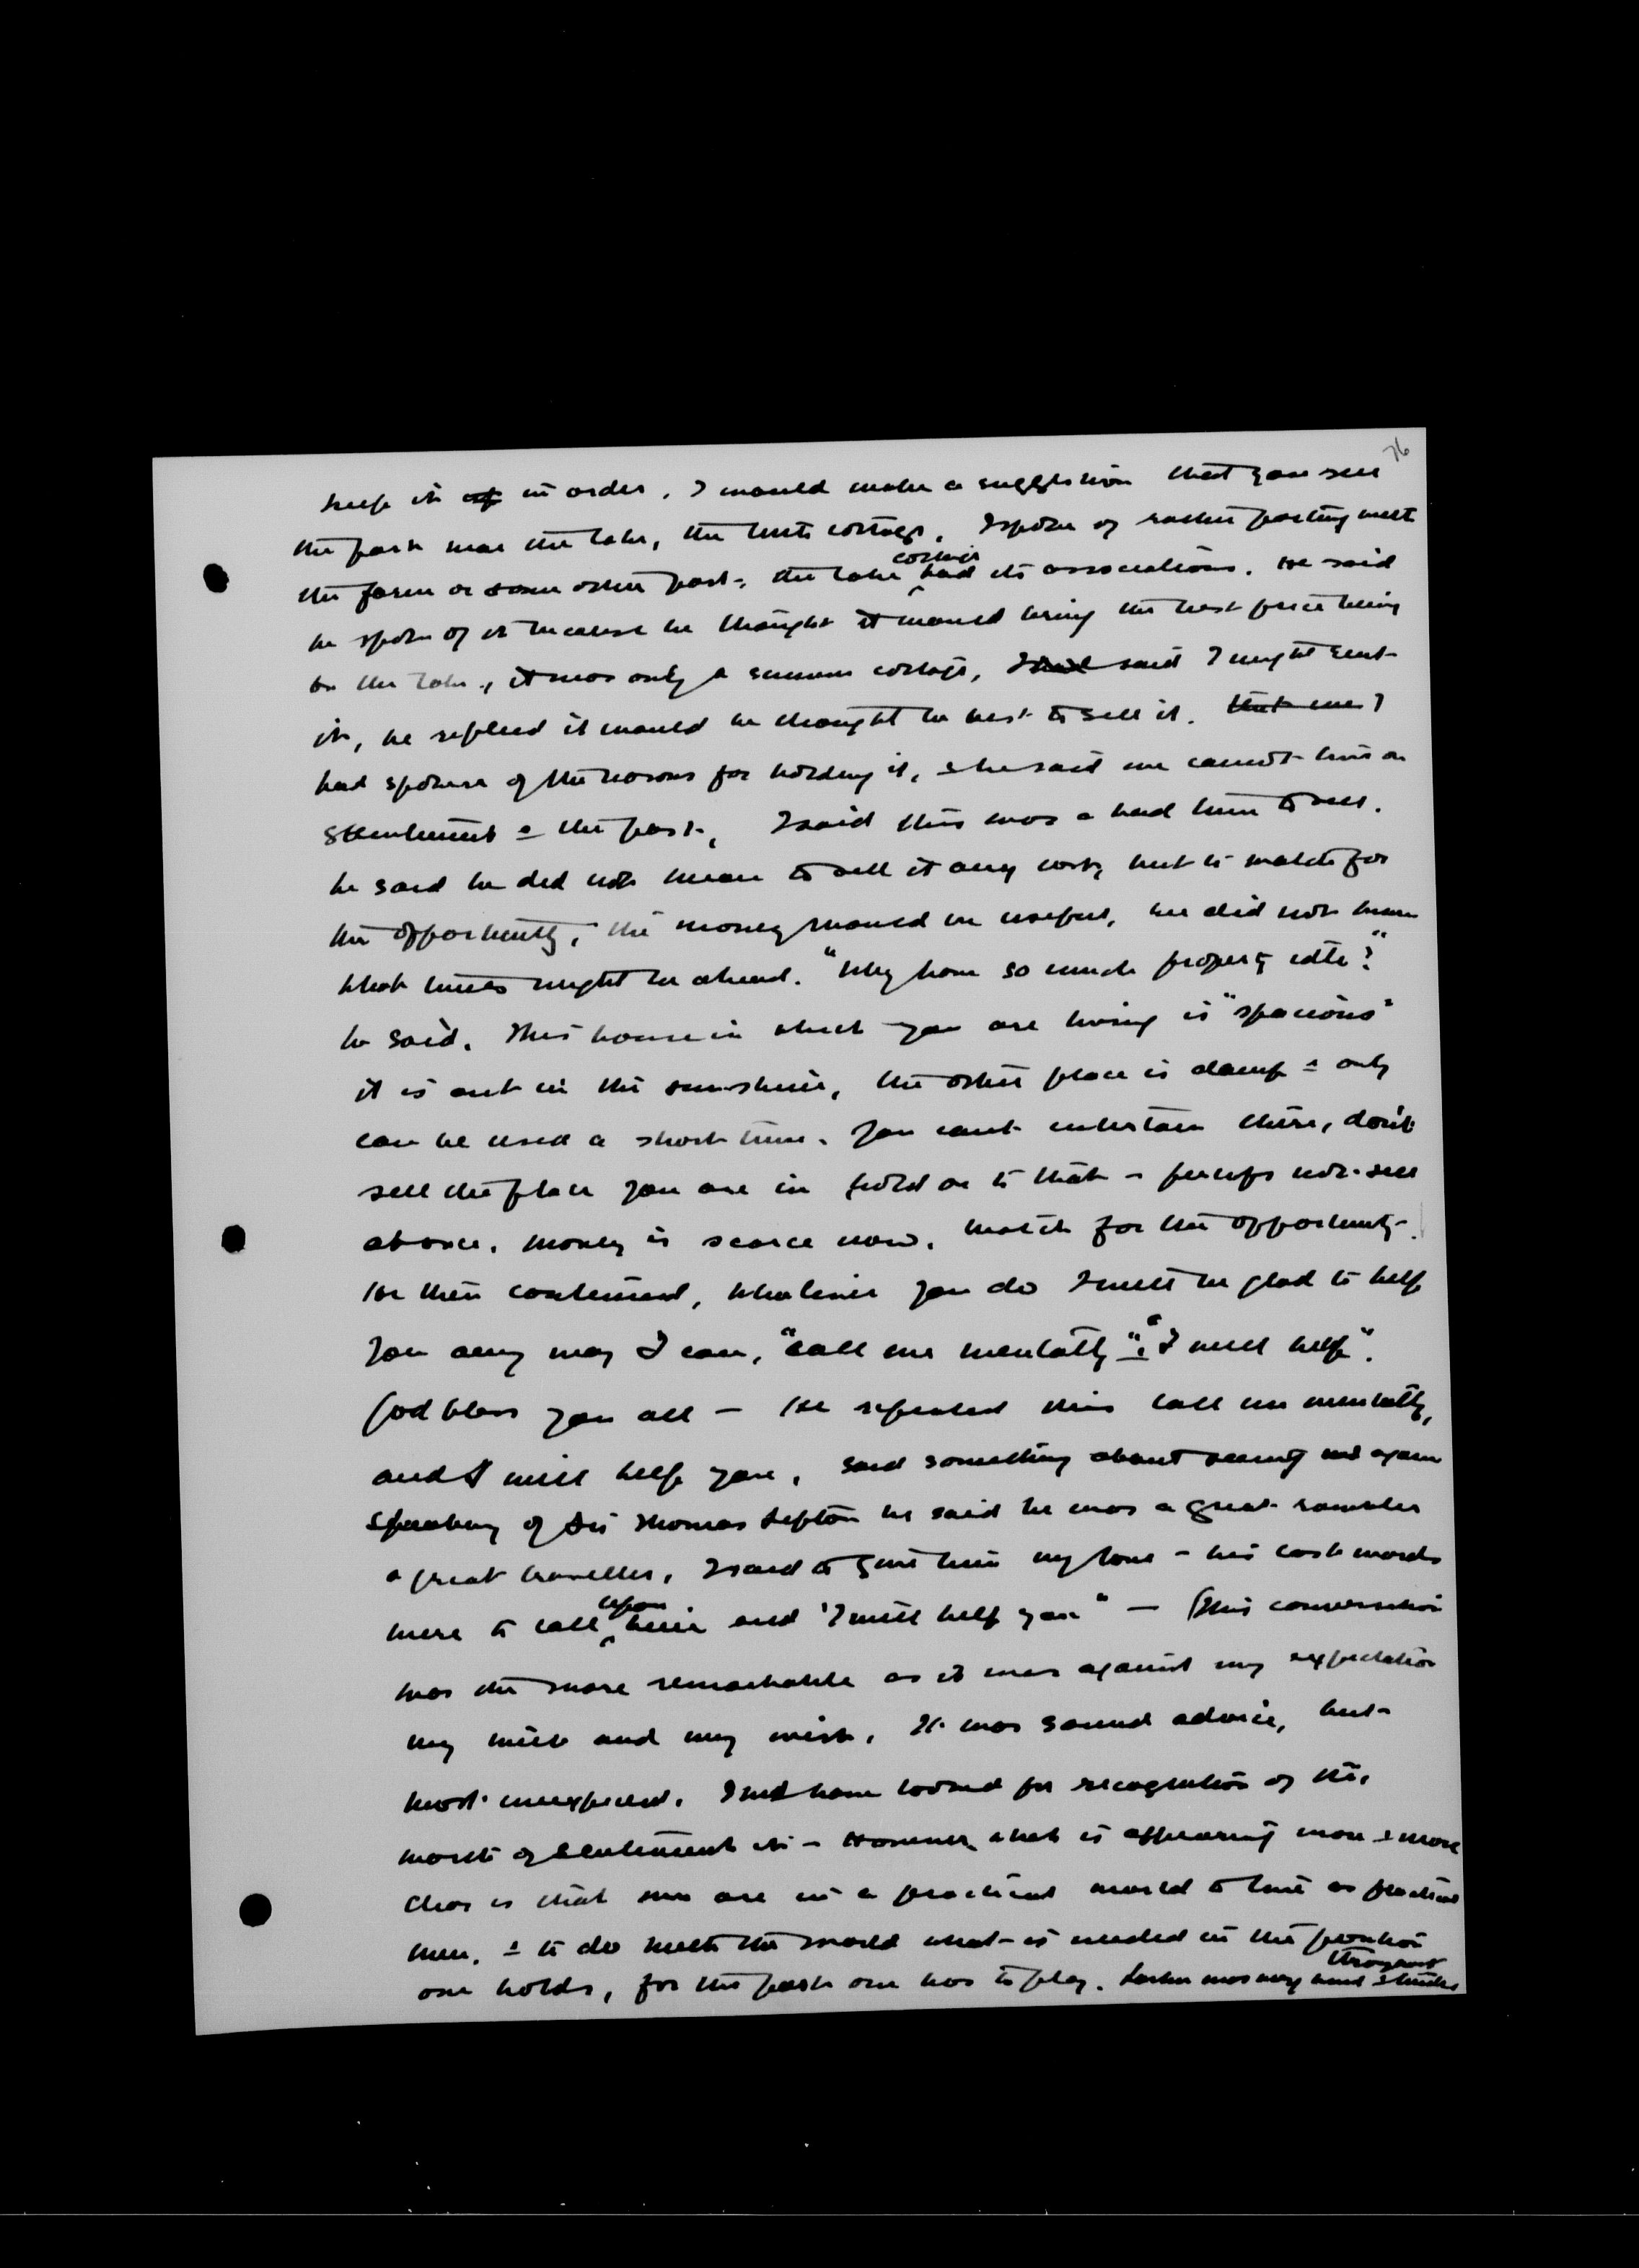 76
keep it up in order. I would make a suggestion that you sell
the part near the lake, the little cottage. I spoke of rather parting with
the farm or some other part, the lake cottage had its associations. He said
he spoke of it because he thought it would bring the best price being
on the lake, it was only a summer cottage, I said said I might rent
it, he replied it would he thought be best to sell it. that we I
had spoken of the reasons for holding it, & he said we cannot live on
sentiment & the past. I said this was a bad time to sell.
he said he did not mean to sell it any way, but to watch for
the opportunity, the money would be useful, we did not know
what times might be ahead. "Why have so much property idle?"
he said. This house in which you are living is "spacious"
it is out in the sunshine, the other place is damp & only
can be used a short time. You can't entertain there, don't
sell the place you are in hold on to that - perhaps not sell
at once. Money is scarce now. Watch for the opportunity.
He then continued, whatever you do I will be glad to help
you any way I can, "call me mentally" & "I will help".
God bless you all — He repeated this call me mentally,
and I will help you, said something about seeing me again
Speaking of Sir Thomas Lipton he said he was a great rambler
a great traveller, I said to give him my love - his last words
were to call upon him and "I will help you" — (This conversation
was the more remarkable as it was against my expectation
my will and my wish. It was sound advice, but
most unexpected. I had have looked for recognition of the
worth of sentiment etc - However what is appearing more & more
clear is that we are in a practical world to live as practical
men, & to do with the world what is needed in the position
one holds, for the part one has to play. Laurier was very kind throughout &